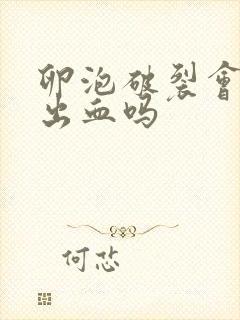 卵泡破裂會
出血吗
何恣